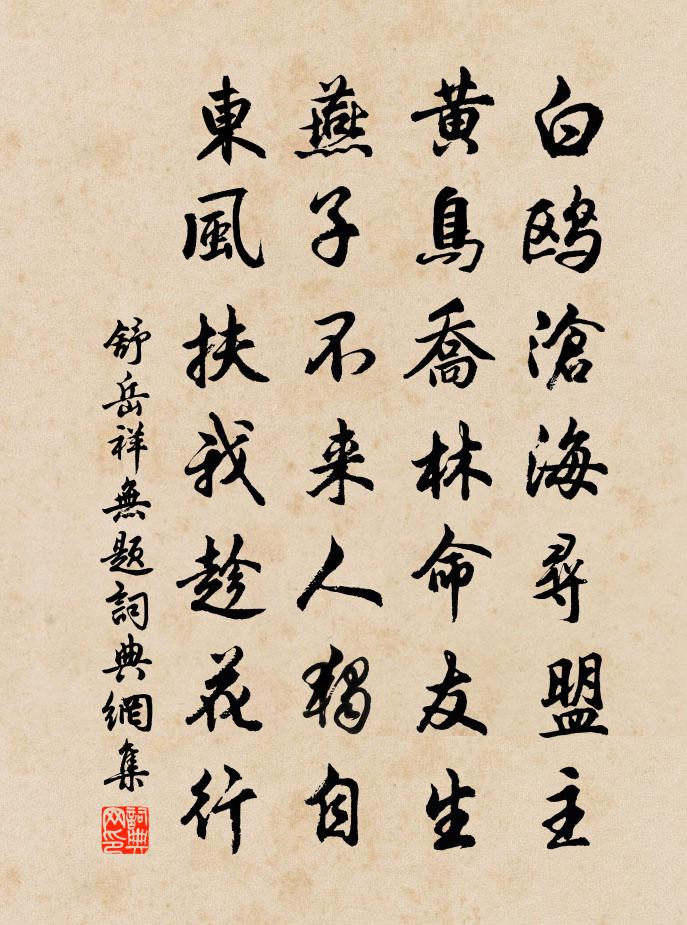 白鷗滄海尋盟主
黃鳥喬林命友生
燕子不来人獨自
東風扶我趁花行
舒岳祥無題詞典網集
詞典网印